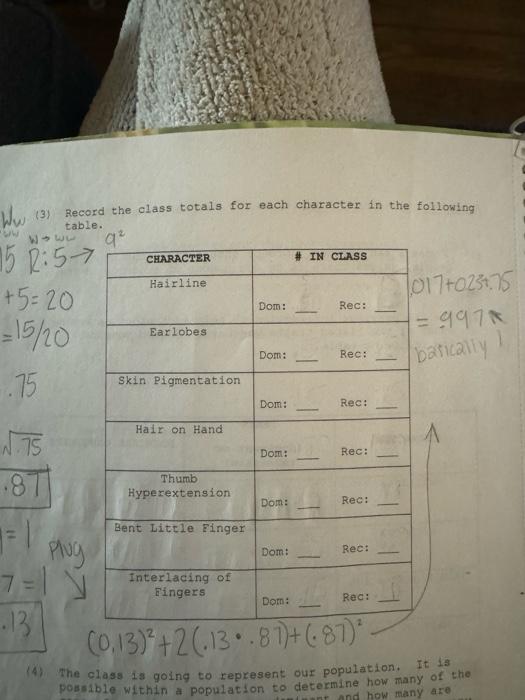 Ww (3) Record the class totals for each character in the following
table.
ww W → ww q²
15 R:5→
+5=20
=15/20
.75
√.75
.87
=1 Plug
7=1
.13
CHARACTER # IN CLASS
Hairline
Dom: __ Rec: __
Earlobes
Dom: __ Rec: __
Skin Pigmentation
Dom: __ Rec: __
Hair on Hand
Dom: __ Rec: __
Thumb
Hyperextension
Dom: __ Rec: __
Bent Little Finger
Dom: __ Rec: __
Interlacing of
Fingers
Dom: __ Rec: __
= .997
basically 1
(0.13)²+2(.13 • .87)+(.87)²
(4) The class is going to represent our population. It is
possible within a population to determine how many of the
and how many are